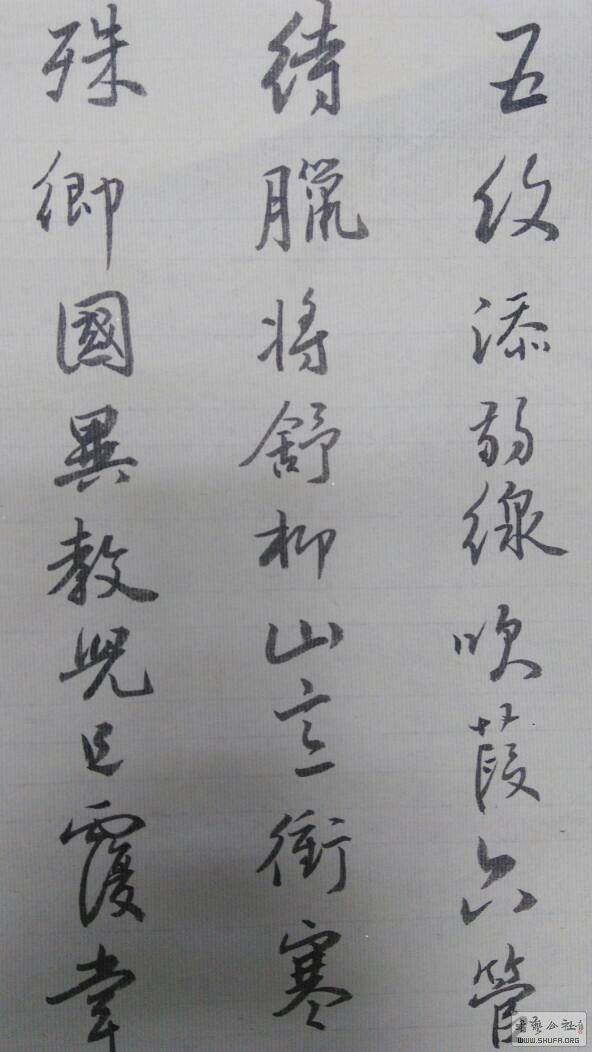 五紋添弱線吹葭六管
待臘将舒柳山意衝寒
殊鄉國異教兒且覆掌
書藝公社
WWW.SHUFA.ORG